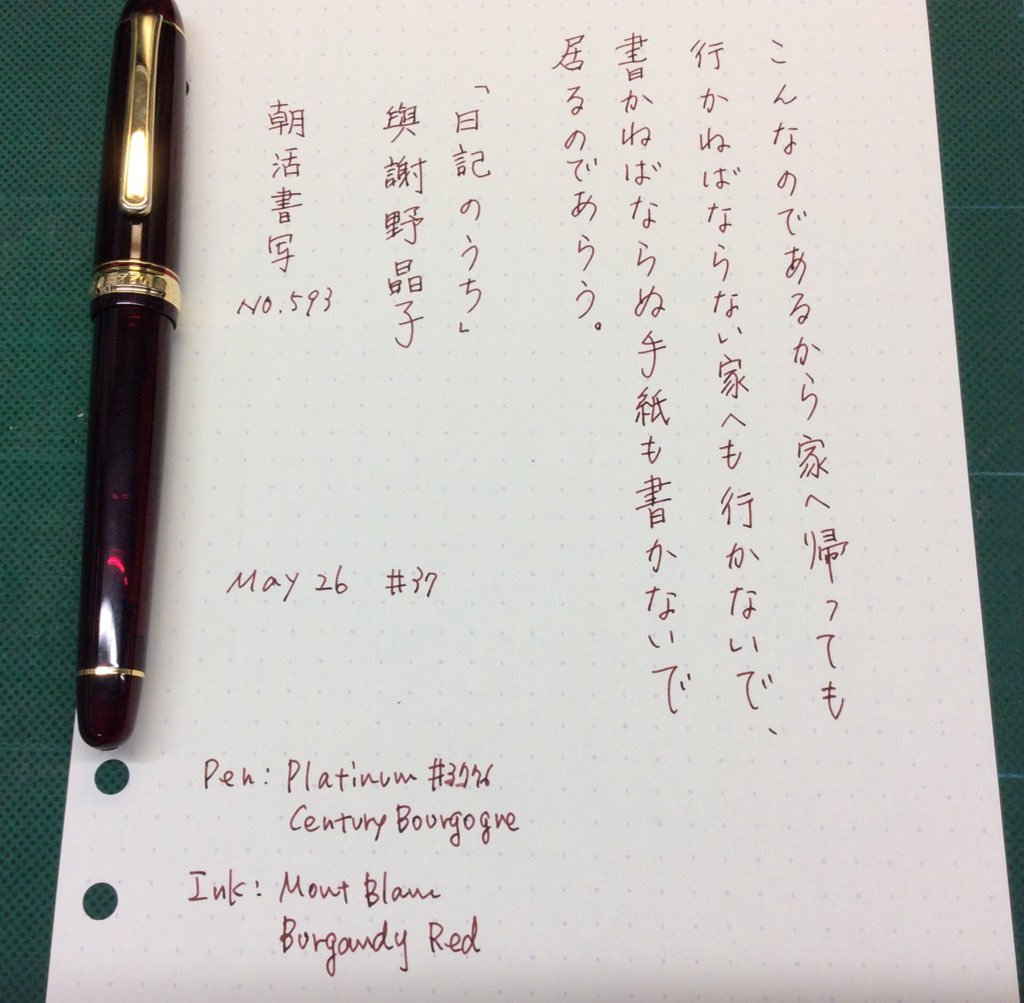 こんなのであるから家へ帰っても
行かねばならない家へも行かないで、
書かねばならぬ手紙も書かないで
居るのであらう。
「日記のうち」
與謝野晶子
朝活書写
NO.593
May 26 #37
Pen: Platinum #3776
Century Bourgogne
Ink: Mont Blanc
Burgandy Red